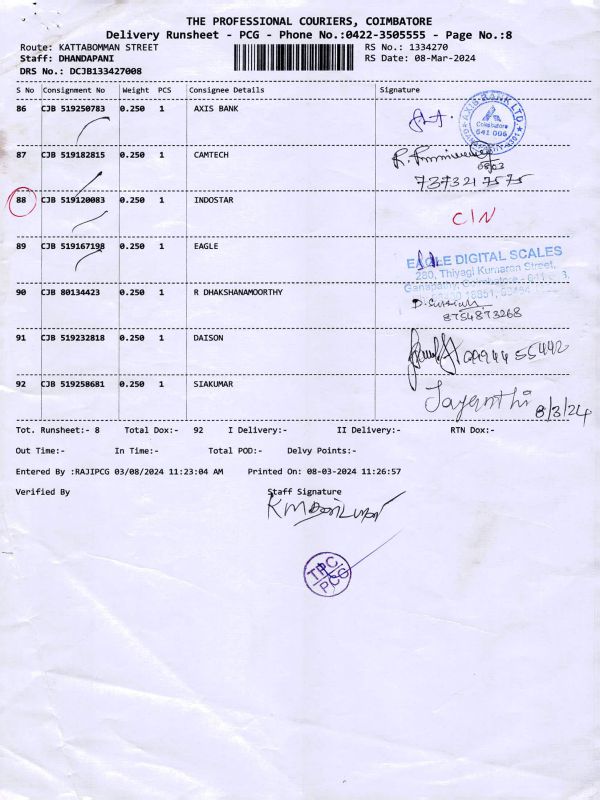 THE PROFESSIONAL COURIERS, COIMBATORE
Delivery Runsheet - PCG - Phone No.:0422-3505555 - Page No.:8
Route: KATTABOMMAN STREET
RS No.: 1334270
Staff: DHANDAPANI
RS Date: 08-Mar-2024
DRS No.: DCJB133427008
S No Consignment No Weight PCS Consignee Details Signature
86 CJB 519250783 0.250 1 AXIS BANK
AXIS BANK LTD.
Coimbatore
641 006
87 CJB 519182815 0.250 1 CAMTECH
08/03
7373217575
88 CJB 519120083 0.250 1 INDOSTAR
CIN
89 CJB 519167198 0.250 1 EAGLE
EAGLE DIGITAL SCALES
280, Thiyagi Kumaran Street,
90 CJB 80134423 0.250 1 R DHAKSHANAMOORTHY
8754873268
91 CJB 519232818 0.250 1 DAISON
9944455442
92 CJB 519258681 0.250 1 SIAKUMAR
Jayanthi 8/3/24
Tot. Runsheet:- 8 Total Dox:- 92 I Delivery:- II Delivery:- RTN Dox:-
Out Time:- In Time:- Total POD:- Delvy Points:-
Entered By :RAJIPCG 03/08/2024 11:23:04 AM Printed On: 08-03-2024 11:26:57
Verified By
Staff Signature
TPC
PCG